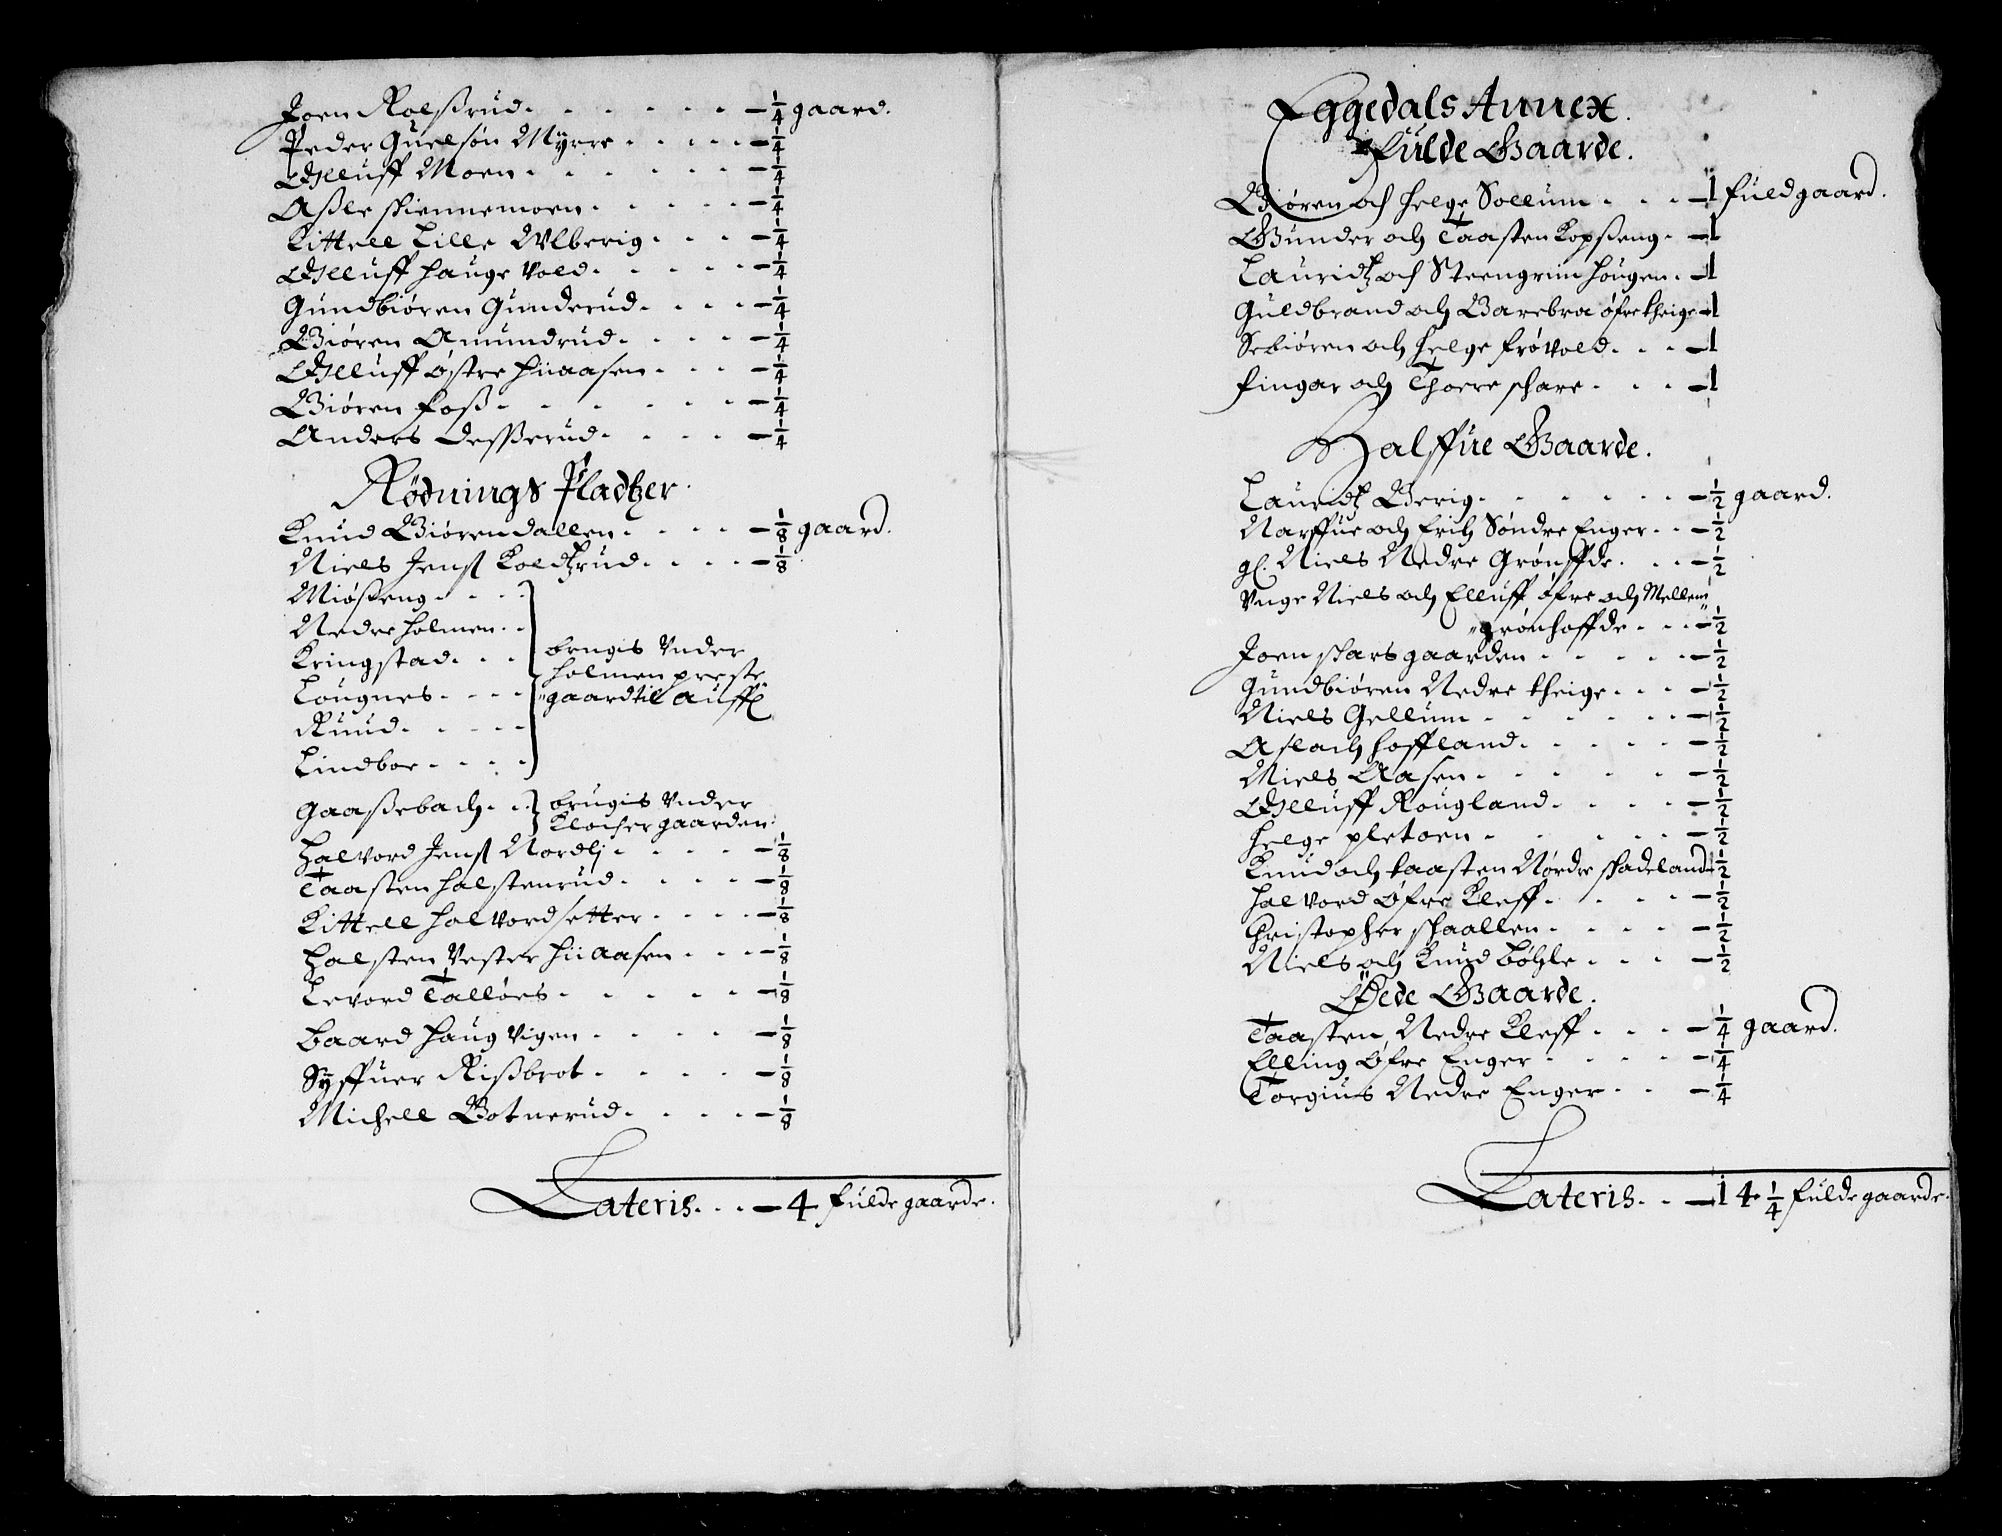 Joen Rolßrud. - ¼ gaard.
Peder Guelsøn Myrre - ¼
Olluff Moen - ¼
Aßle skiennemoen - ¼
Kittell Lille Wlberig - ¼
Olluff hauge Vold - ¼
Gundbiøren Gunderud - ¼
Biøren Amundrud - ¼
Olluff østre hiiaasen - ¼
Biøren foß - ¼
Anders Deßerud - ¼
Rødnings Pladtzer.
Knud Biørendallen - ⅛ gaard.
Niels Jenß Koldtzrud - ⅛
Miøßeng
Nedre holmen
Kringstad
Lougnes
Ruud
Lindboe
brugis Vnder
holmen preste
gaard til auffl
Gaaßebach
brugis Vnder
Klocker gaarden
Halvord Jenß Nordlj - ⅛
Taasten halstenrud - ⅛
Kittell halvordsetter - ⅛
Halsten Vester hiiaasen - ⅛
Levord Talløes - ⅛
Baard haugvigen - ⅛
Syffuer Rißbrot - ⅛
Michell Botnerud - ⅛
Lateris - 4 fulde gaarde.
Eggedals Annex.
Fulde Gaarde.
Biøren och helge Sollum - 1 fuldgaard.
Gunder och Taasten Kopßeng - 1
Lauridtz och Steengrim hougen - 1
Guldbrand och Barebra øfre theige - 1
Sebiøren och helge frøvold - 1
fingar och Thorre share - 1
Halffue Gaarde.
Lauridtz Berig - ½ gaard.
Narffue och Erich Søndre Enger - ½
gl. Niels Nedre Grønffde - ½
Vnge Niels och Elluff øfre och Mellem
grønhoffde - ½
Joen skars gaarden - ½
Gundbiøren Nedre theige - ½
Niels Gellum - ½
Aslach hoffland - ½
Niels Aasen - ½
Olluff Rougland - ½
helge pletoen - ½
Knud och taasten Nørdre skadeland - ½
halvord Øfre Kleff - ½
Christopher skaallen - ½
Niels och Knud bøhle - ½
Øede Gaarde.
Taasten Nedre Kleff - ¼ gaard.
Elling Øfre Enger - ¼
Torgius Nedre Enger - ¼
Lateris - 14 ¼ fulde gaarde.